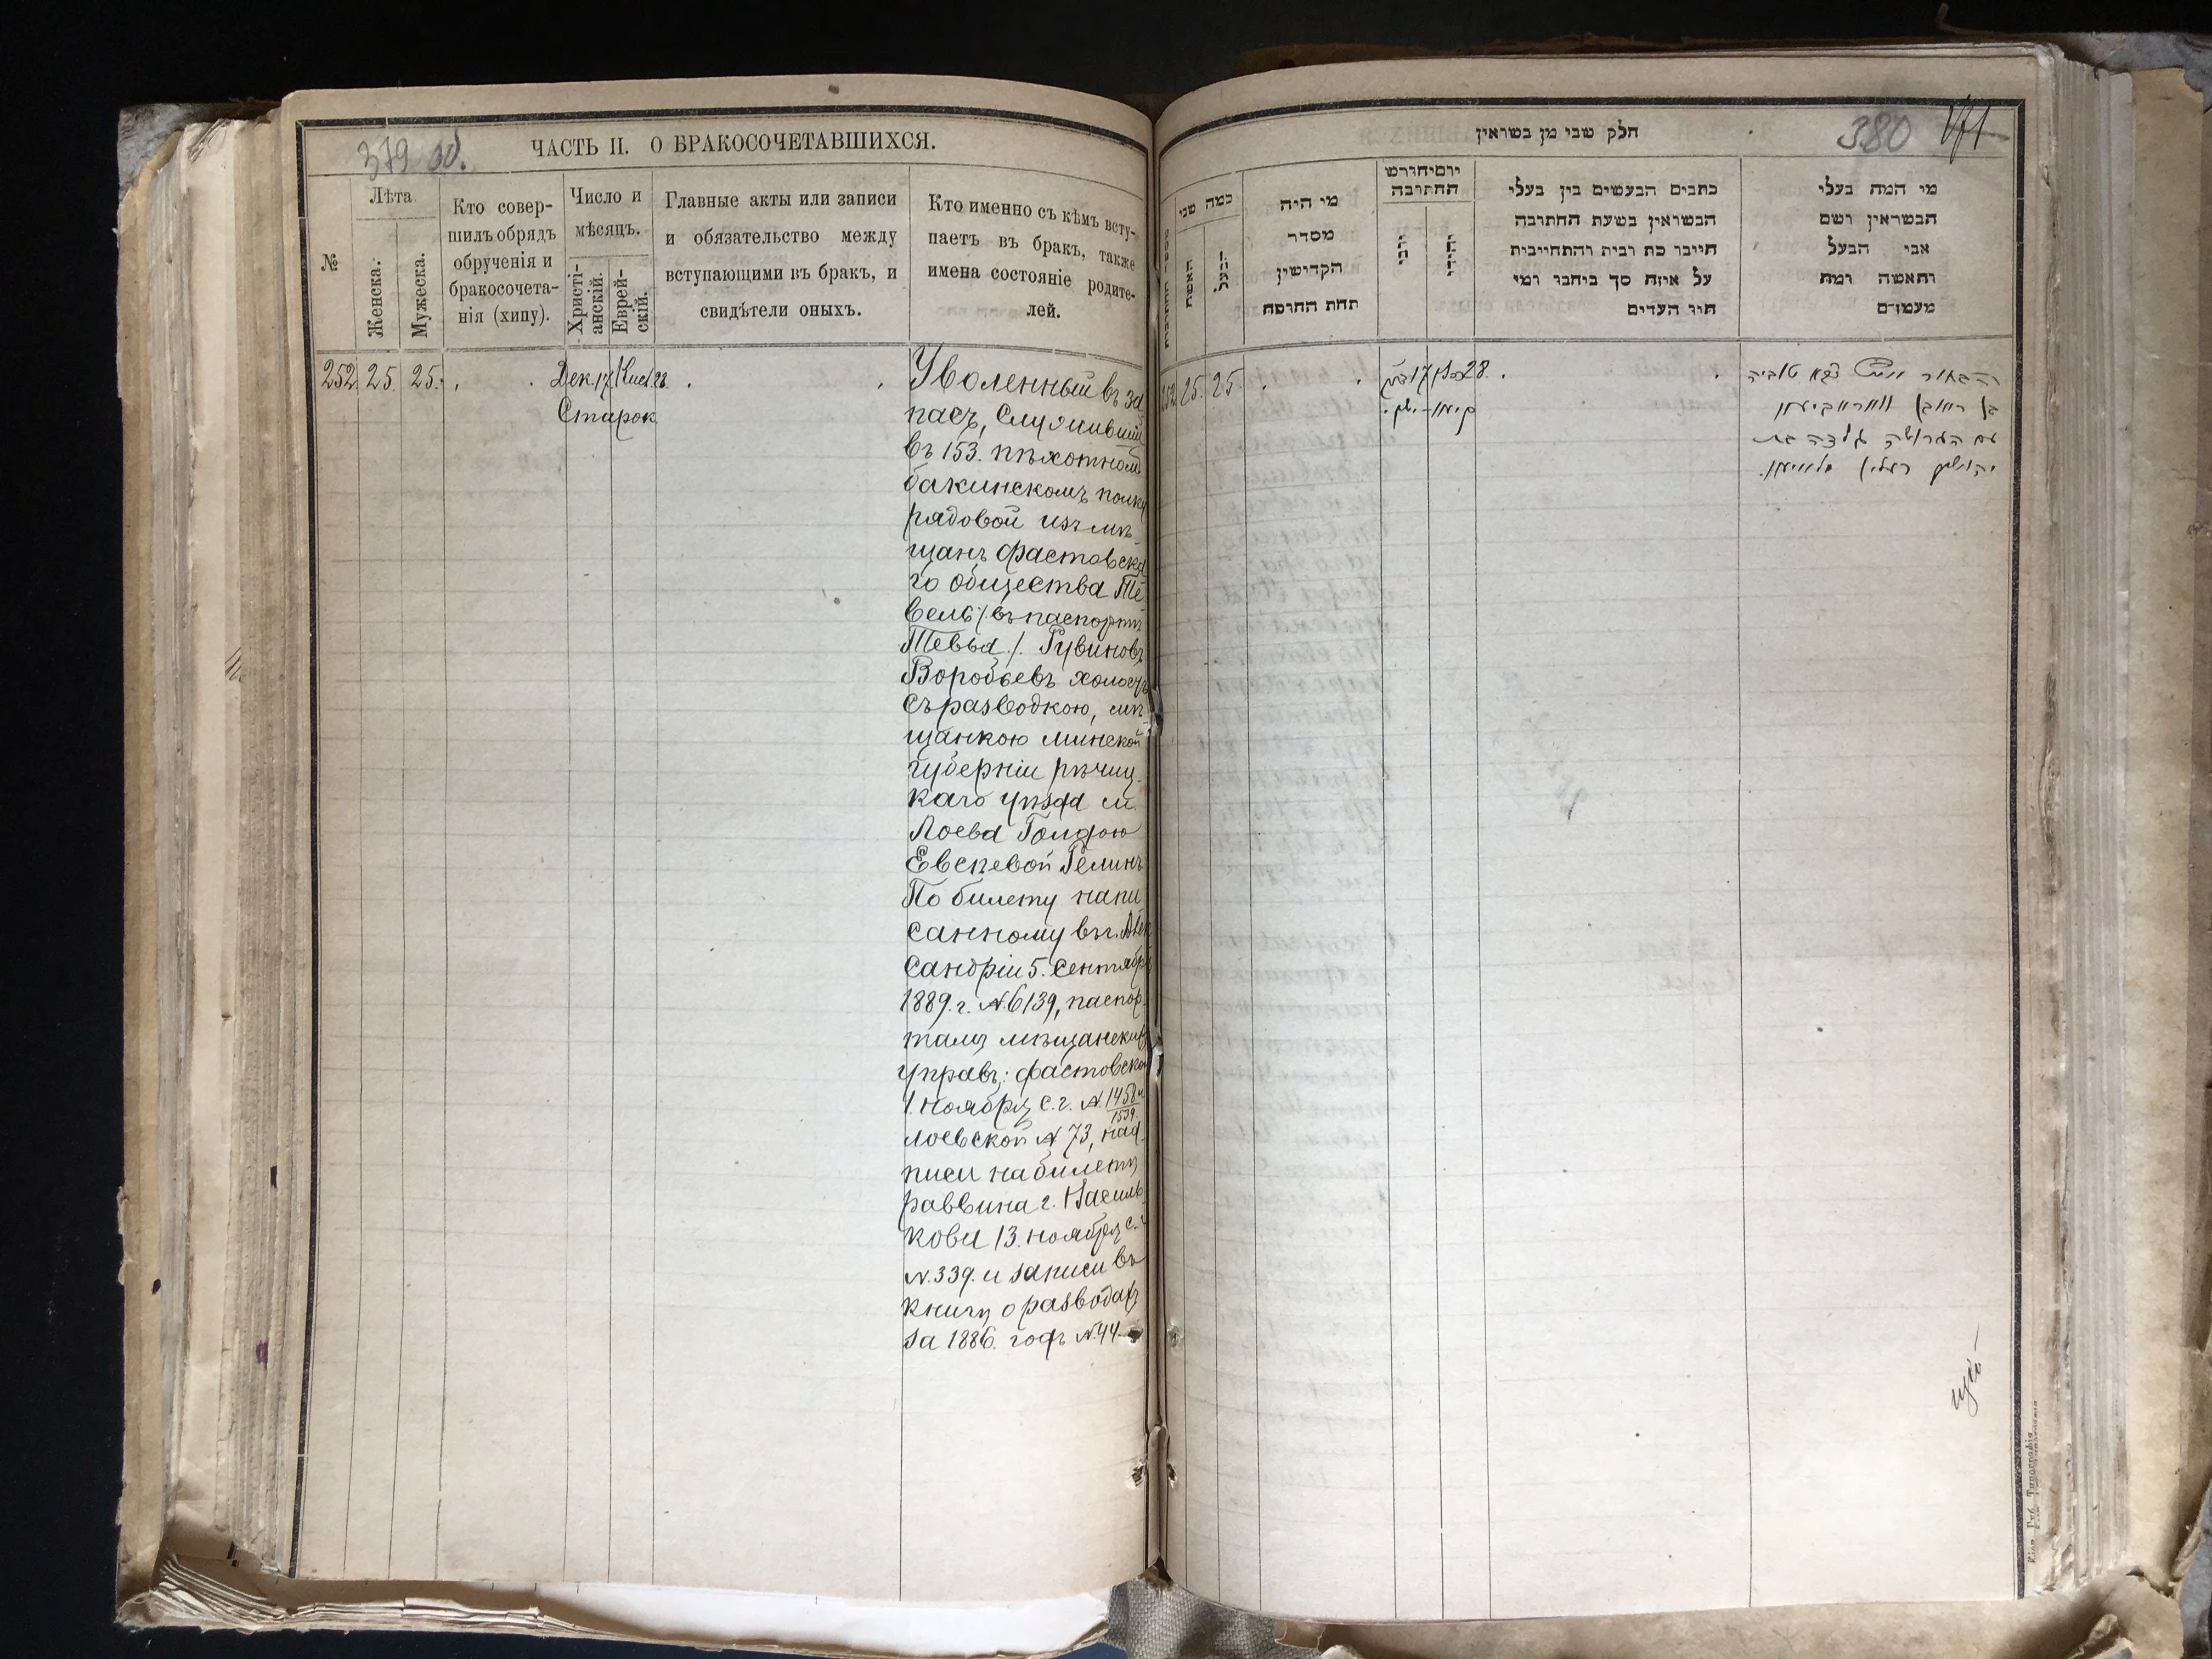 379 об.
ЧАСТЬ II. О БРАКОСОЧЕТАВШИХСЯ.
№
Лѣта.
Женска.
Мужеска.
Кто совер-
шилъ обрядъ
обрученія и
бракосочета-
нія (хипу).
Число и
мѣсяцъ.
Христі-
анскій.
Еврей-
скій.
Главные акты или записи
и обязательство между
вступающими въ бракъ, и
свидѣтели оныхъ.
Кто именно съ кѣмъ всту-
паетъ въ бракъ, также
имена состояніе родите-
лей.
252. 25. 25. Дек. 17. Кисл. 28.
Старок
Уволенный въ за
пасъ, служившій
въ 153. пѣхотномъ
бакинскомъ полку
рядовой изъ мѣ-
щанъ фастовска
го общества Те
вель /:въ паспортѣ
Тевья./. Рувиновъ
Воробьевъ холостъ
съ разводкою, мѣ
щанкою минской
губерніи рѣчиц-
каго уѣзда м.
Лоева Голдою
Евсѣевой Гелинъ
По билету напи
санному въ г. Алек
сандріи 5. Сентября
1889. г. №6139, паспор-
тамъ мѣщанскихъ
управъ: фастовской
1. ноября с. г. № 1458 и
1539.
лоевской № 73, над
писи на билетѣ
раввина г. Василь
кова 13. ноября с. г.
№. 339. и записи въ
книгѣ о разводахъ
за 1886. годъ №. 44
380
171
חלק שני מן בשואין
כמה שני
האשה
הבעל
מי היה
מסדר
הקדושין
תחת החופה
יום וחודש
החתונה
כתבים הנעשים בין בעלי
הנשואין בשעת החתונה
חייבו כת ובית והתחייבות
על איזה סך ביחבו ומי
היו העדים
מי המה בעלי
הנשואין ושם
אבי הבעל
והאשה ומה
מעמדם
252 25. 25. 17 28.
טוביה
עם הגרושה גאלדה בת